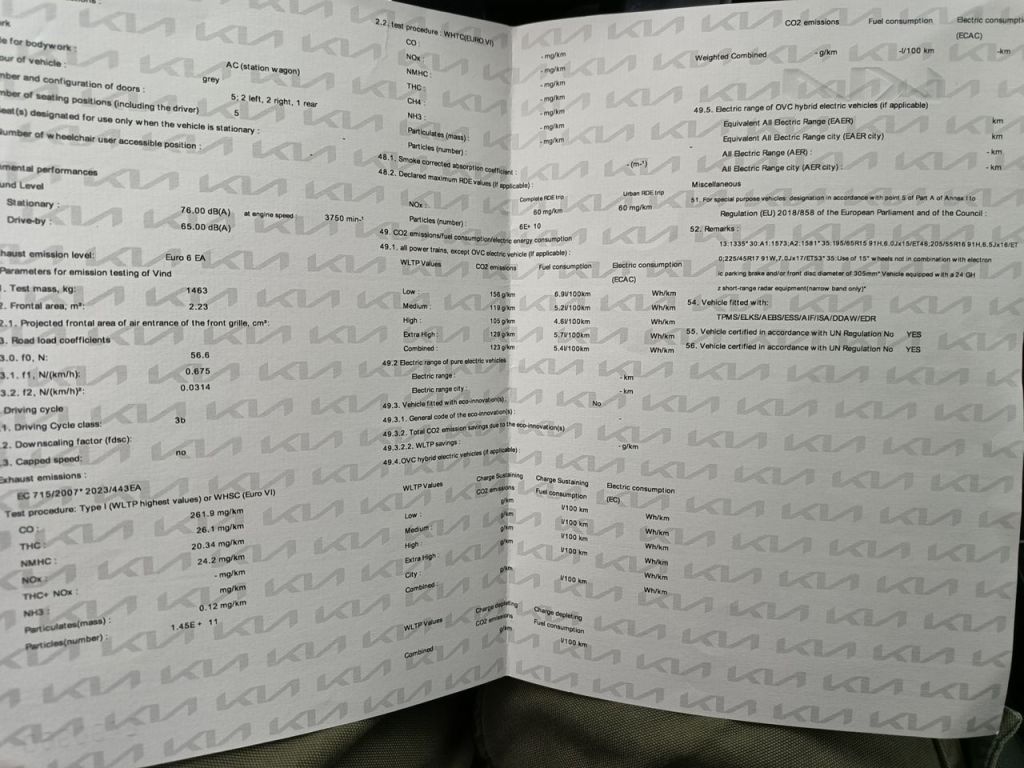 rk
e for bodywork :
AC (station wagon)
our of vehicle :
grey
mber and configuration of doors :
5; 2 left, 2 right, 1 rear
mber of seating positions (including the driver)
5
seat(s) designated for use only when the vehicle is stationary :
umber of wheelchair user accessible position :
nmental performances
und Level
Stationary : 76.00 dB(A) at engine speed: 3750 min-¹
Drive-by : 65.00 dB(A)
haust emission level: Euro 6 EA
Parameters for emission testing of Vind
. Test mass, kg: 1463
2. Frontal area, m²: 2.23
2.1. Projected frontal area of air entrance of the front grille, cm²:
3. Road load coefficients
3.0. f0, N: 56.6
3.1. f1, N/(km/h): 0.675
3.2. f2, N/(km/h)²: 0.0314
Driving cycle
1. Driving Cycle class: 3b
2. Downscaling factor (fdsc):
3. Capped speed: no
Exhaust emissions :
EC 715/2007* 2023/443EA
Test procedure: Type I (WLTP highest values) or WHSC (Euro VI)
CO : 261.9 mg/km
THC : 26.1 mg/km
NMHC : 20.34 mg/km
NOx : 24.2 mg/km
THC+ NOx : - mg/km
NH3 : mg/km
Particulates(mass) : 0.12 mg/km
Particles(number) : 1.45E + 11
2.2. test procedure : WHTC(EURO VI)
CO : - mg/km
NOx : - mg/km
NMHC : - mg/km
THC : - mg/km
CH4 : - mg/km
NH3 : - mg/km
Particulates (mass) : - mg/km
Particles (number) :
48.1. Smoke corrected absorption coefficient : - (m-¹)
48.2. Declared maximum RDE values (if applicable) :
Complete RDE trip Urban RDE trip
NOx : 60 mg/km 60 mg/km
Particles (number) : 6E+ 10
49. CO2 emissions/fuel consumption/electric energy consumption
49.1. all power trains, except OVC electric vehicle (if applicable) :
WLTP Values CO2 emissions Fuel consumption Electric consumption
(ECAC)
Low : 156 g/km 6.9l/100km Wh/km
Medium : 119 g/km 5.2l/100km Wh/km
High : 105 g/km 4.6l/100km Wh/km
Extra High : 129 g/km 5.7l/100km Wh/km
Combined : 123 g/km 5.4l/100km Wh/km
49.2 Electric range of pure electric vehicles
Electric range : - km
Electric range city : - km
49.3. Vehicle fitted with eco-innovation(s) : No
49.3.1. General code of the eco-innovation(s) : -
49.3.2. Total CO2 emission savings due to the eco-innovation(s)
49.3.2.2. WLTP savings : - g/km
49.4.OVC hybrid electric vehicles (if applicable) :
WLTP Values Charge Sustaining Charge Sustaining Electric consumption
CO2 emissions Fuel consumption (EC)
Low : g/km l/100 km Wh/km
Medium : g/km l/100 km Wh/km
High : g/km l/100 km Wh/km
Extra High : g/km l/100 km Wh/km
City : Wh/km
Combined : g/km l/100 km Wh/km
WLTP Values Charge depleting Charge depleting
CO2 emissions Fuel consumption
Combined : g/km l/100 km
CO2 emissions Fuel consumption Electric consumpti
(ECAC)
Weighted Combined - g/km -l/100 km -km
49.5. Electric range of OVC hybrid electric vehicles (if applicable)
Equivalent All Electric Range (EAER) km
Equivalent All Electric Range city (EAER city) km
All Electric Range (AER) : - km
All Electric Range city (AER city) : - km
Miscellaneous
51. For special purpose vehicles: designation in accordance with point 5 of Part A of Annex I to
Regulation (EU) 2018/858 of the European Parliament and of the Council :
52. Remarks :
13:1335* 30:A1:1573;A2:1581* 35:195/65R15 91H,6.0Jx15/ET46;205/55R16 91H,6.5Jx16/ET
0;225/45R17 91W,7.0Jx17/ET53* 35:Use of 15" wheels not in combination with electron
ic parking brake and/or front disc diameter of 305mm* Vehicle equipped with a 24 GH
z short-range radar equipment(narrow band only)*
54. Vehicle fitted with:
TPMS/ELKS/AEBS/ESS/AIF/ISA/DDAW/EDR
55. Vehicle certified in accordance with UN Regulation No YES
56. Vehicle certified in accordance with UN Regulation No YES